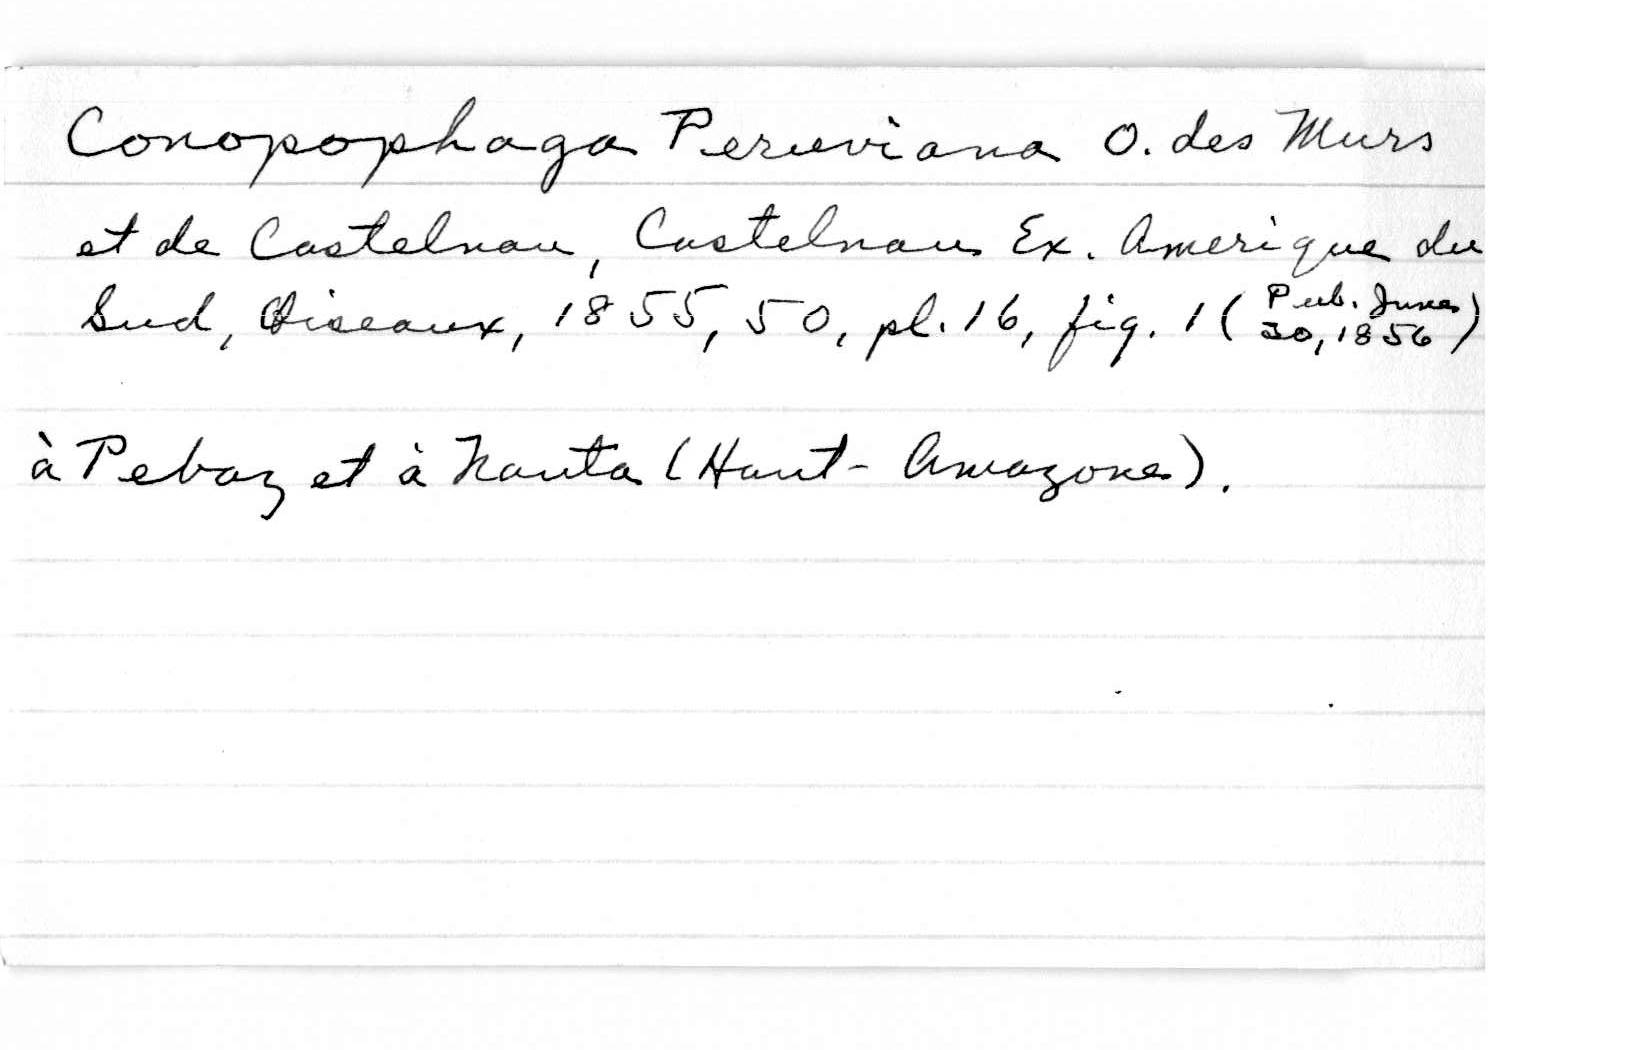 Conopophaga Peruviana O. des Murs
et de Castelnau, Castelnau Ex. Amerique du
Sud, Oiseaux, 1855, 50, pl. 16, fig. 1 (Pub. June
30, 1856)
à Pebaz et à Nauta (Haut-Amazone).